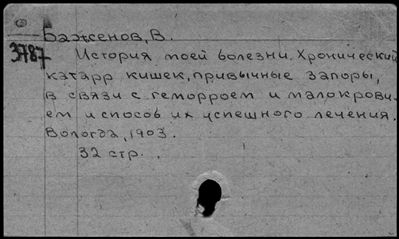 Баженов, В.
3787
История моей болезни. Хронический
катарр кишек, привычные запоры,
в связи с геморроем и малокрови-
ем и способ их успешного лечения.
Вологда, 1903.
32 стр.